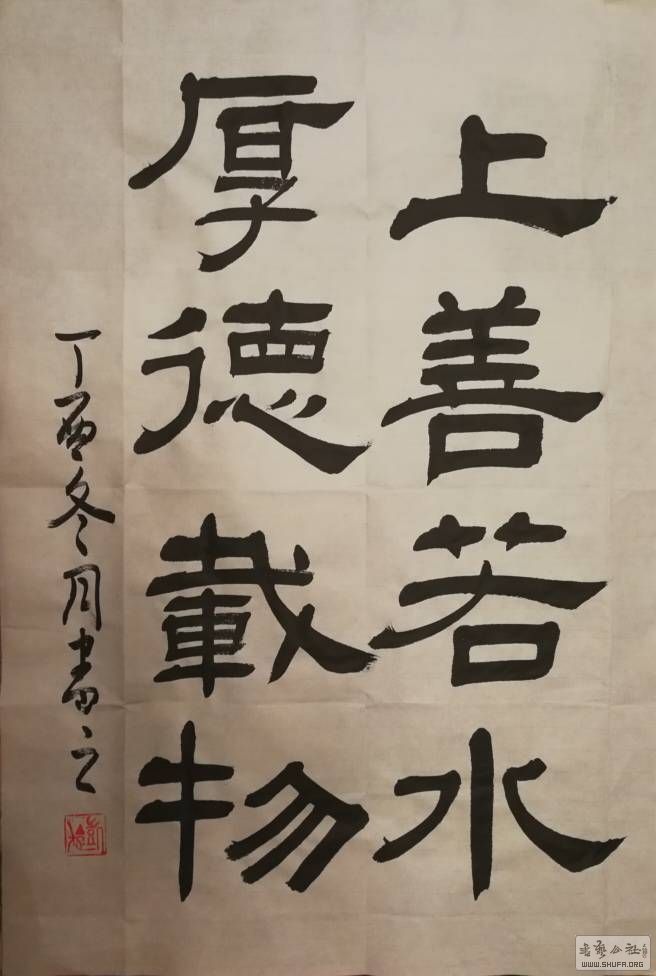 上善若水
厚德載物
丁酉冬月書之
書藝公社
WWW.SHUFA.ORG